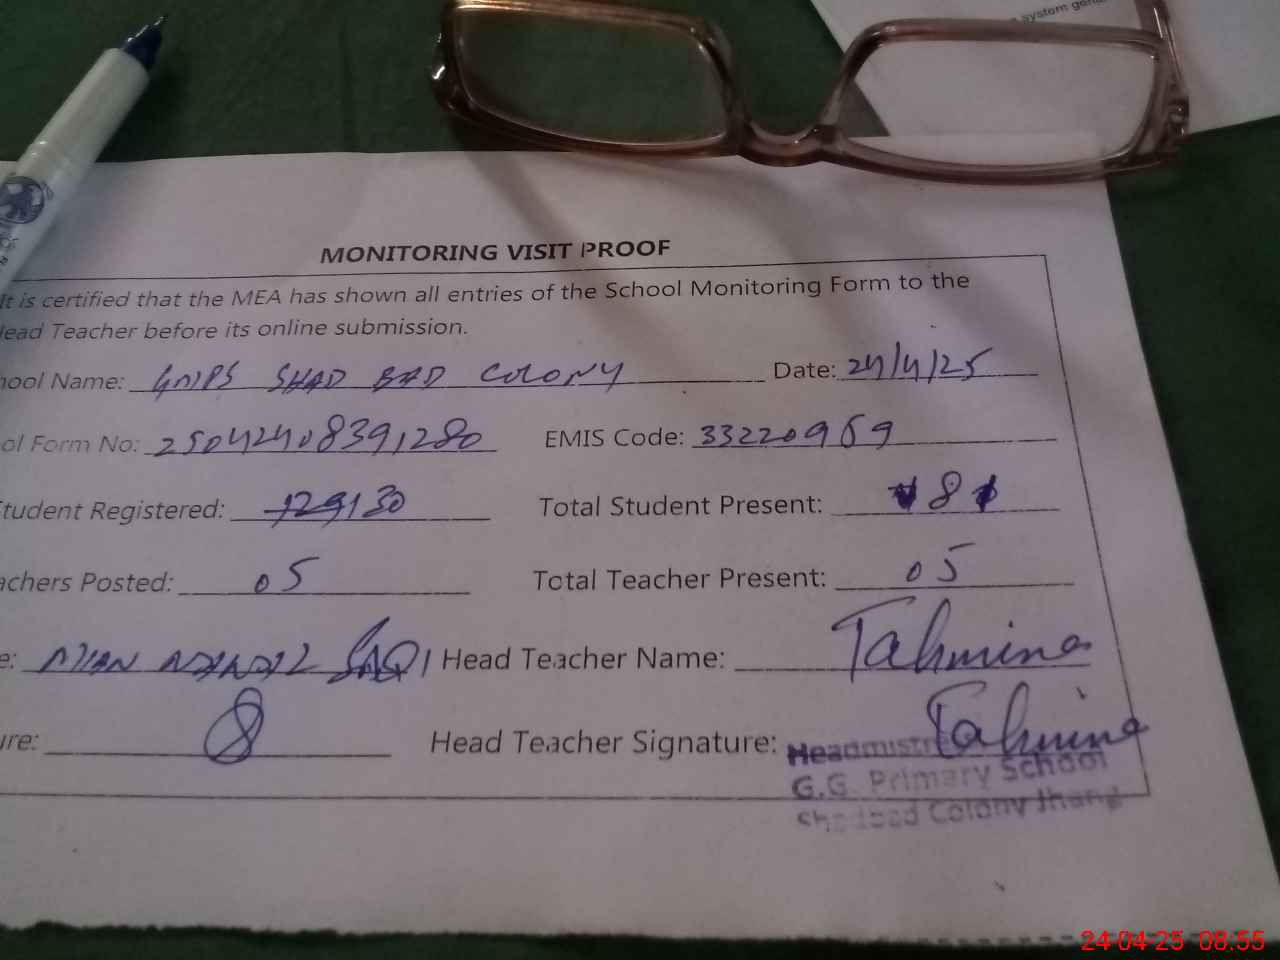 system gene
MONITORING VISIT PROOF
It is certified that the MEA has shown all entries of the School Monitoring Form to the
Head Teacher before its online submission.
hool Name: SHAD BAD COLONY Date: 24/4/25
ol Form No: 25042408391280 EMIS Code: 33220969
Student Registered: 129130 Total Student Present: 8
achers Posted: 05 Total Teacher Present: 05
e: MIAN Head Teacher Name: Tahmina
ure: Head Teacher Signature: Tahmina
Headmistr
G.G. Primary School
Shadbad Colony Jhang
24-04-25 08:55